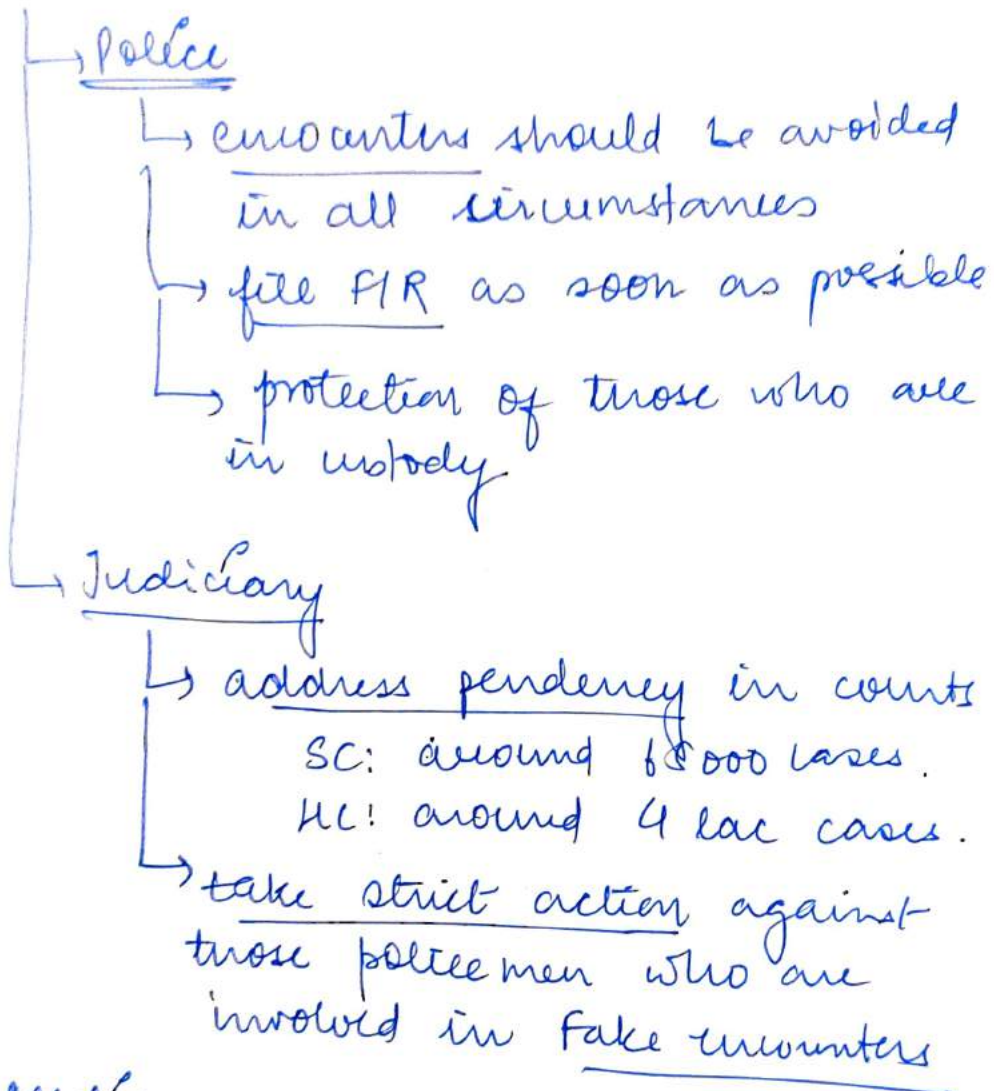 Police
encounters should be avoided
in all circumstances
file FIR as soon as possible
protection of those who are
in custody
Judiciary
address pendency in courts
SC: around cases.
HC: around 4 lac cases.
take strict action against
those policemen who are
involved in Fake encounters